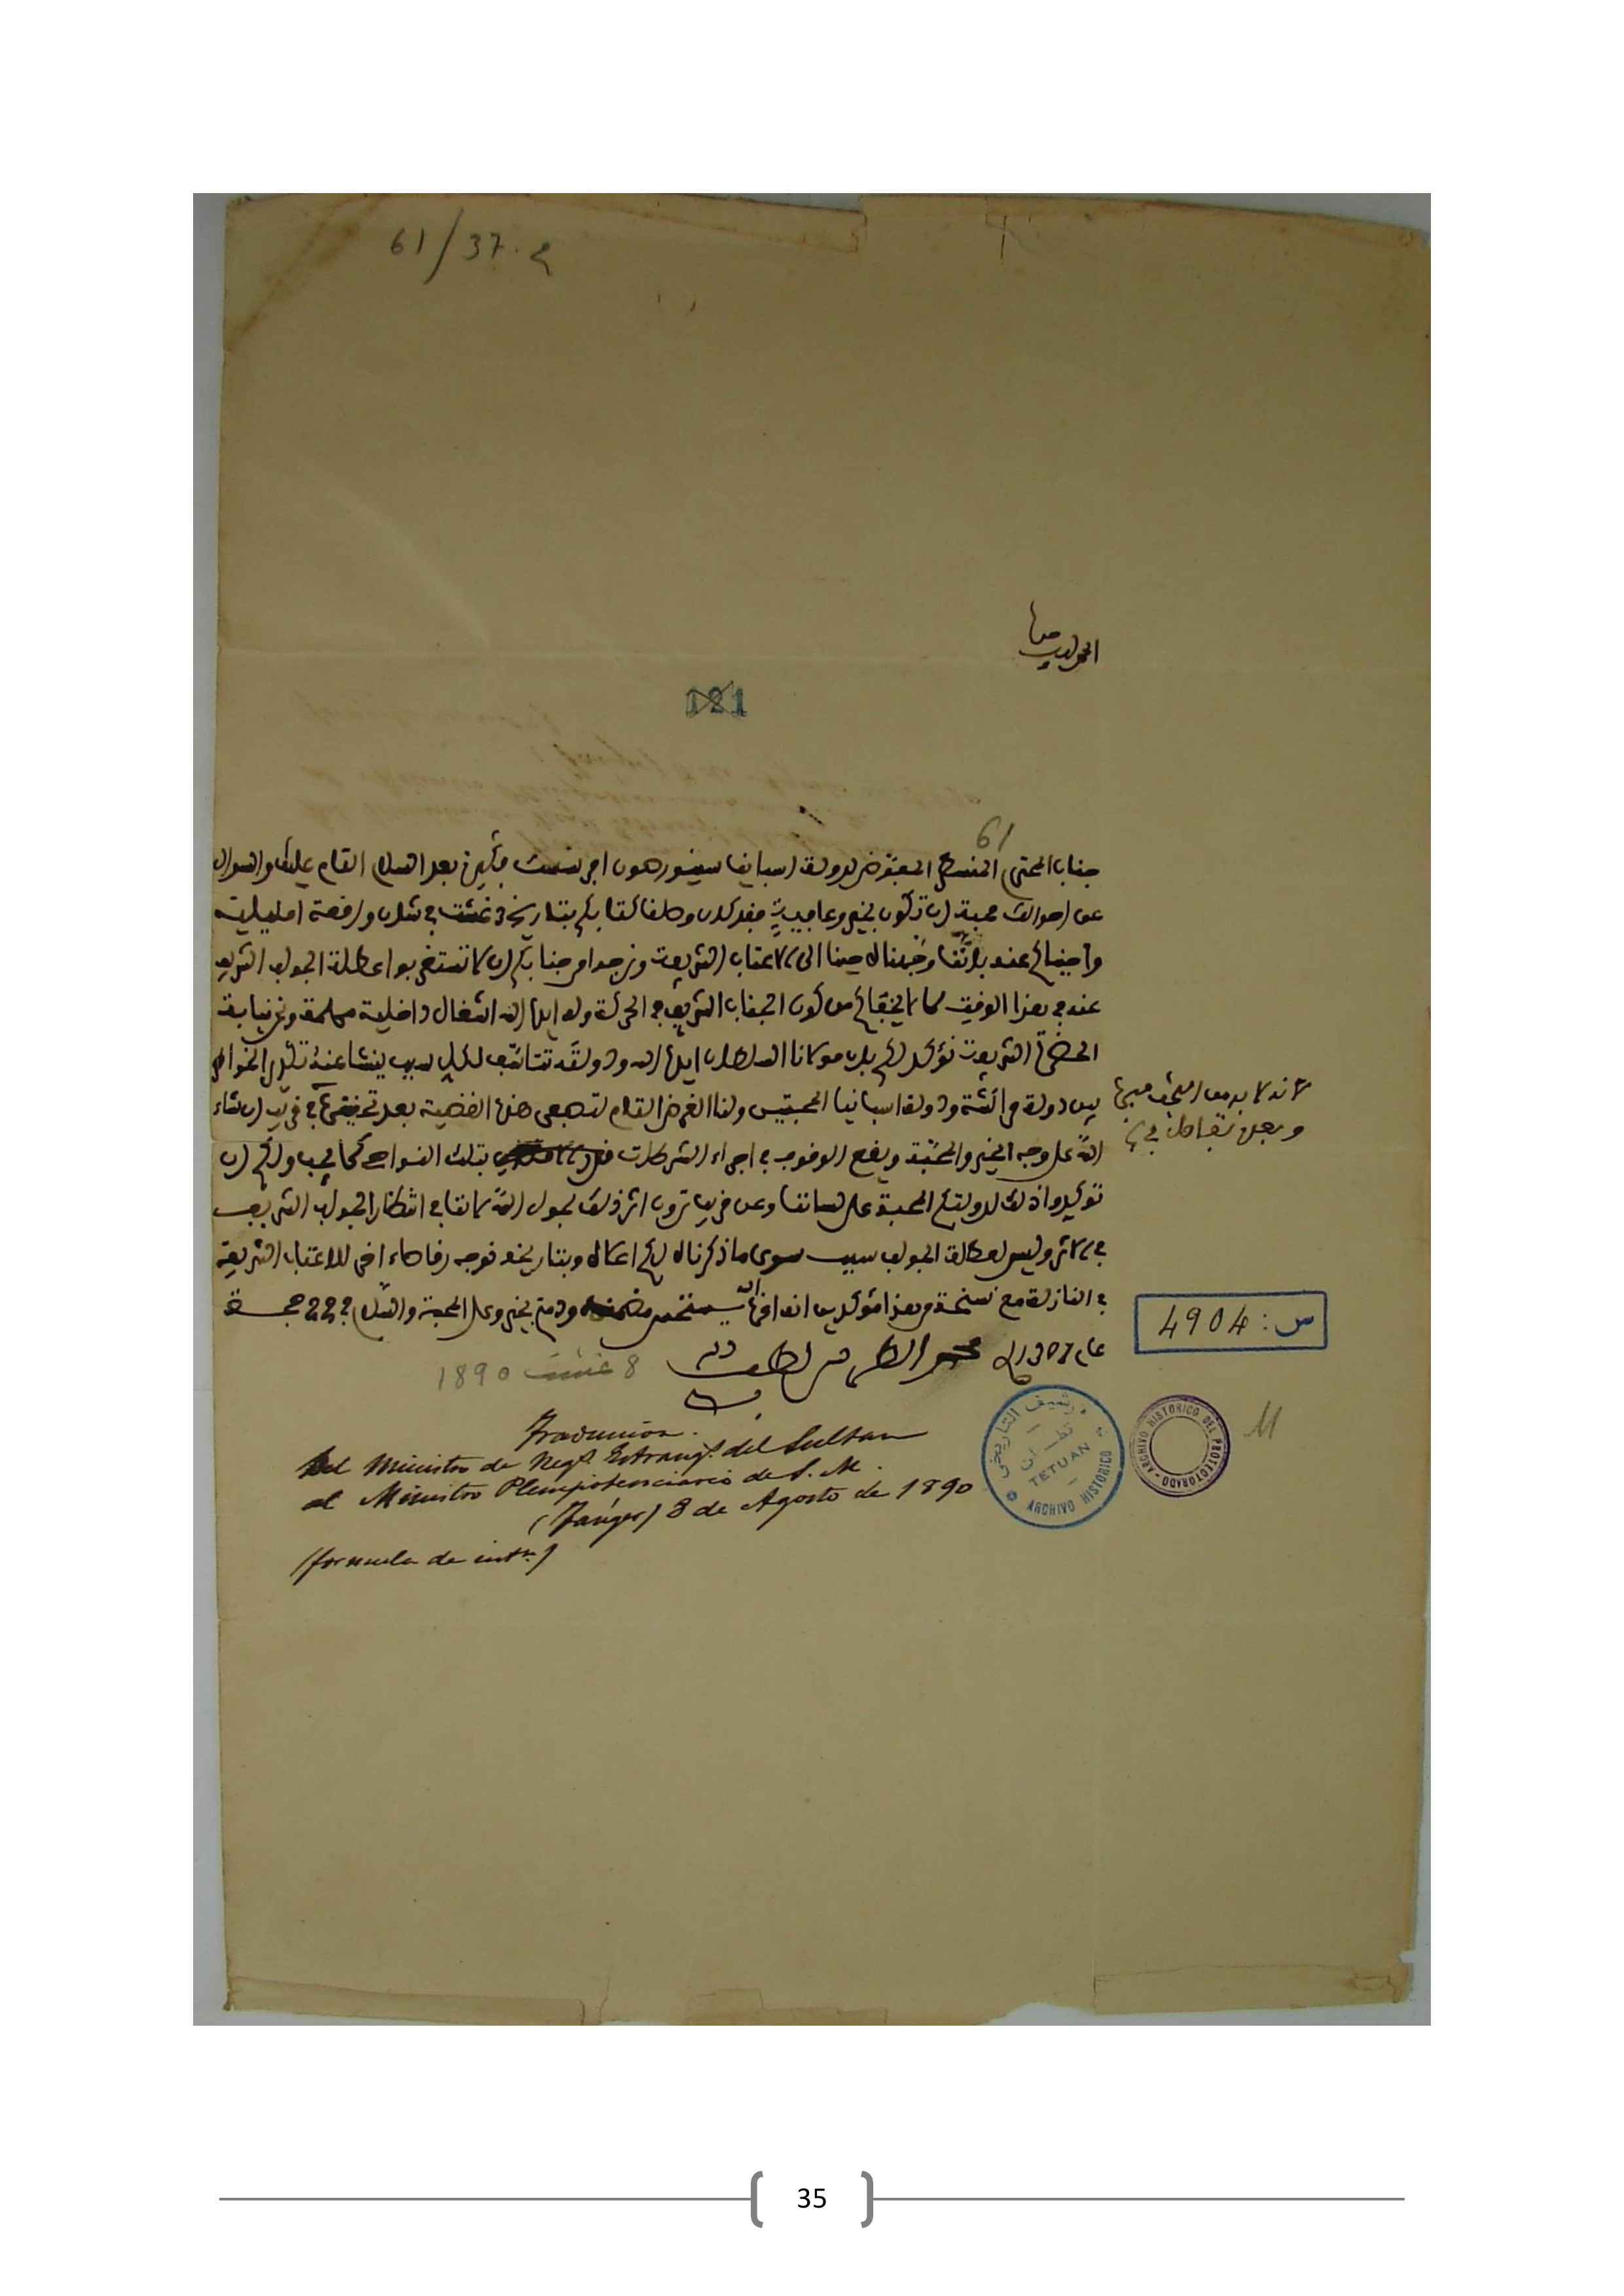 61/37.2
الحمد لله وحده
121
61
جناب المحترم المنسطر المفوض لدولة اسبانيا سينيور
عن احوالك محبة ان تكون بخير وعافية فقد كان وصلنا كتابكم بتاريخ 3 غشت في شان واقعة امليلية
واجبناكم عنه باننا وجهناه حينا الى الاعتاب الشريفة ونرجوا من جنابكم ان لا تستغربوا عطلة الجواب الشريف
عنه في هذا الوقت لما لا يخفاكم من كون الجناب الشريف في الحركة وله ايده الله اشغال داخلية مهمة ونحن نيابة
الحضرة الشريفة نؤكد لكم بان مولانا السلطان ايده الله ودولته تتاسف لكل سبب ينشا عنه
بين دولة مراكشة ودولة اسبانيا المحبتين ولنا الغرض التام لتصفى هذه القضية بعد تحقيقها في قريب ان شاء
لانه لا بد من البحث فيها
الله على وجه الخير والمحبة ويقع الوقوف في اجراء الشرطات بتلك النواحي كما يجب ولكم ان
توكدوا ذلك لدولتكم المحبة على لساننا وعن قريب ترون اثر ذلك بحول الله لاننا في انتظار الجواب الشريف
في الاثر وليس لعطلة الجواب سبب سوى ما ذكرناه لكم اعلاه وبتاريخه نوجه رقاصا اخر للاعتاب الشريفة
في النازلة مع نسخة من هذا مؤكدين ودمتم بخير وعلى المحبة والسلام في 22 حجة
عام 1307
محمد الطريس لطف الله به
8 غشت 1890
س: 4904
Traducción.
Del Ministro de Negs. Estrangs. del Sultan
al Ministro Plenipotenciario de S. M.
(Tánger) 8 de Agosto de 1890
(formula de intn.)
الأرشيف التاريخي
تطوان
TETUAN
ARCHIVO HISTORICO
ARCHIVO HISTORICO DEL PROTECTORADO
M
35